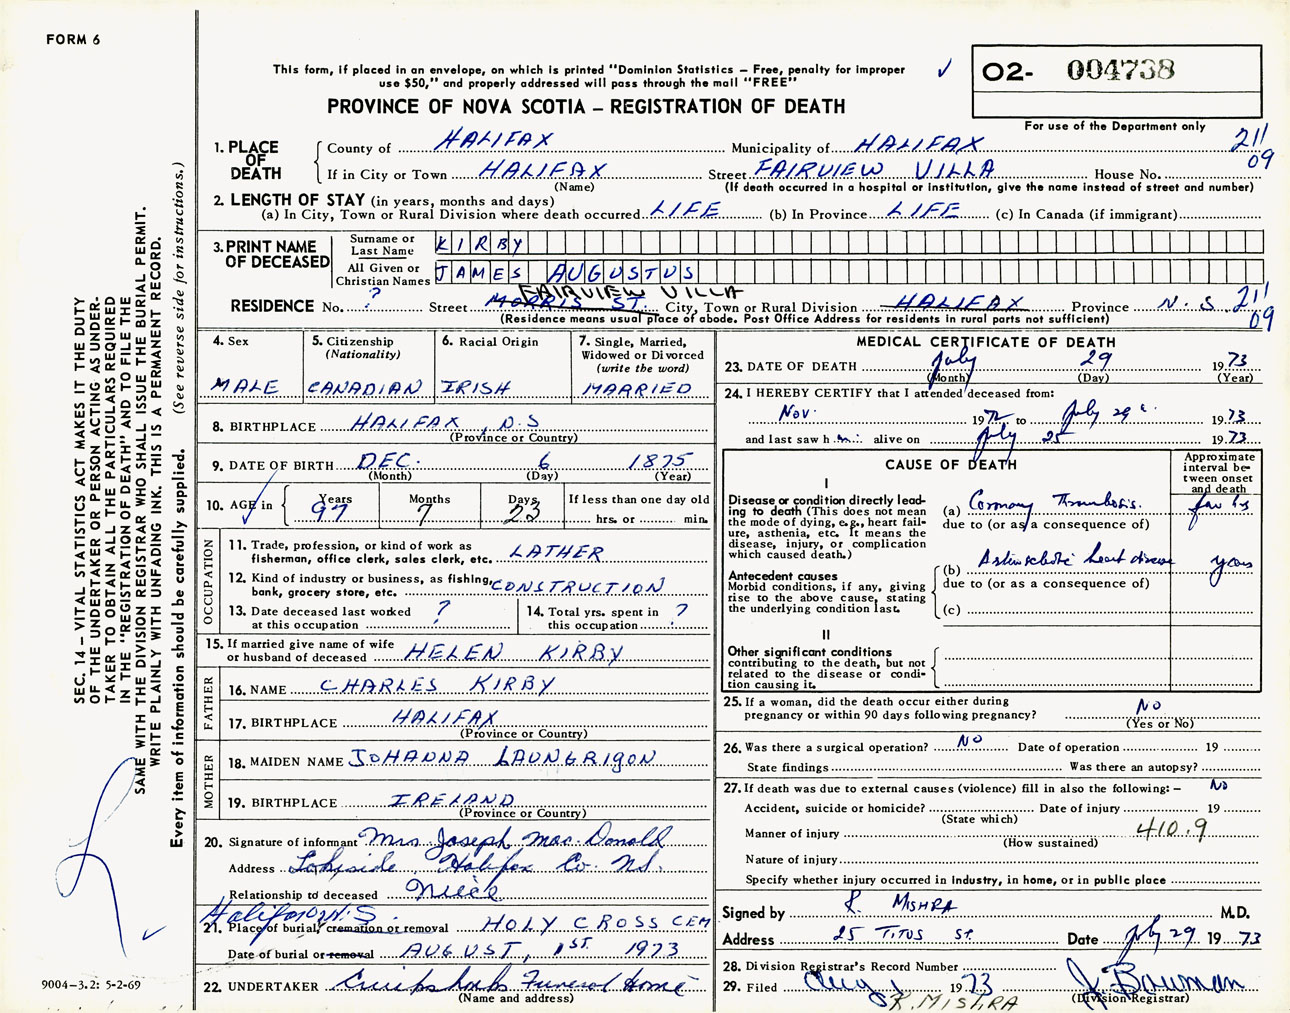 FORM 6
This form, if placed in an envelope, on which is printed "Dominion Statistics – Free, penalty for improper
use $50," and properly addressed will pass through the mail "FREE"
O2- 004738
PROVINCE OF NOVA SCOTIA – REGISTRATION OF DEATH
For use of the Department only
1. PLACE OF DEATH
County of HALIFAX Municipality of HALIFAX 211
If in City or Town HALIFAX Street FAIRVIEW VILLA House No. 09
(Name) (If death occurred in a hospital or institution, give the name instead of street and number)
2. LENGTH OF STAY (in years, months and days)
(a) In City, Town or Rural Division where death occurred LIFE (b) In Province LIFE (c) In Canada (if immigrant)
3. PRINT NAME OF DECEASED
Surname or Last Name KIRBY
All Given or Christian Names JAMES AUGUSTUS
FAIRVIEW VILLA
RESIDENCE No. ? Street MORRIS ST. City, Town or Rural Division HALIFAX Province N.S. 211
(Residence means usual place of abode. Post Office Address for residents in rural parts not sufficient) 09
4. Sex
MALE
5. Citizenship
(Nationality)
CANADIAN
6. Racial Origin
IRISH
7. Single, Married,
Widowed or Divorced
(write the word)
MARRIED
8. BIRTHPLACE HALIFAX, N.S
(Province or Country)
9. DATE OF BIRTH DEC. 6 1875
(Month) (Day) (Year)
10. AGE in Years Months Days If less than one day old
97 7 23 hrs. or min.
OCCUPATION
11. Trade, profession, or kind of work as
fisherman, office clerk, sales clerk, etc. LATHER
12. Kind of industry or business, as fishing,
bank, grocery store, etc. CONSTRUCTION
13. Date deceased last worked
at this occupation ?
14. Total yrs. spent in
this occupation ?
15. If married give name of wife
or husband of deceased HELEN KIRBY
FATHER
16. NAME CHARLES KIRBY
17. BIRTHPLACE HALIFAX
(Province or Country)
MOTHER
18. MAIDEN NAME JOHANNA LAUNGRIGON
19. BIRTHPLACE IRELAND
(Province or Country)
20. Signature of informant Mrs Joseph Mac Donald
Address Lakeside, Halifax Co. NS.
Relationship to deceased Niece
Halifax N.S.
21. Place of burial, cremation or removal HOLY CROSS CEM
Date of burial or removal AUGUST, 1ST. 1973
22. UNDERTAKER Cruikshanks Funeral Home
(Name and address)
MEDICAL CERTIFICATE OF DEATH
23. DATE OF DEATH July 29 1973
(Month) (Day) (Year)
24. I HEREBY CERTIFY that I attended deceased from:
Nov. 1972 to July 29 1973
and last saw h im alive on July 25 1973
CAUSE OF DEATH
Approximate
interval be-
tween onset
and death
I
Disease or condition directly lead-
ing to death (This does not mean
the mode of dying, e.g., heart fail-
ure, asthenia, etc. It means the
disease, injury, or complication
which caused death.)
(a) Coronary Thrombosis. few hrs
due to (or as a consequence of)
Antecedent causes
Morbid conditions, if any, giving
rise to the above cause, stating
the underlying condition last.
(b) heart disease years
due to (or as a consequence of)
(c)
II
Other significant conditions
contributing to the death, but not
related to the disease or condi-
tion causing it.
25. If a woman, did the death occur either during
pregnancy or within 90 days following pregnancy? NO
(Yes or No)
26. Was there a surgical operation? NO Date of operation 19
State findings Was there an autopsy?
27. If death was due to external causes (violence) fill in also the following: – NO
Accident, suicide or homicide? Date of injury 19
(State which)
Manner of injury 410.9
(How sustained)
Nature of injury
Specify whether injury occurred in industry, in home, or in public place
Signed by R. MISHRA M.D.
Address 25 TITUS St. Date July 29 1973
28. Division Registrar's Record Number
29. Filed Aug 1 1973 J Bowman
(Division Registrar)
R. MISHRA
SEC. 14 – VITAL STATISTICS ACT MAKES IT THE DUTY
OF THE UNDERTAKER OR PERSON ACTING AS UNDER-
TAKER TO OBTAIN ALL THE PARTICULARS REQUIRED
IN THE "REGISTRATION OF DEATH" AND TO FILE THE
SAME WITH THE DIVISION REGISTRAR WHO SHALL ISSUE THE BURIAL PERMIT.
WRITE PLAINLY WITH UNFADING INK. THIS IS A PERMANENT RECORD.
Every item of information should be carefully supplied. (See reverse side for instructions.)
9004-3.2: 5-2-69